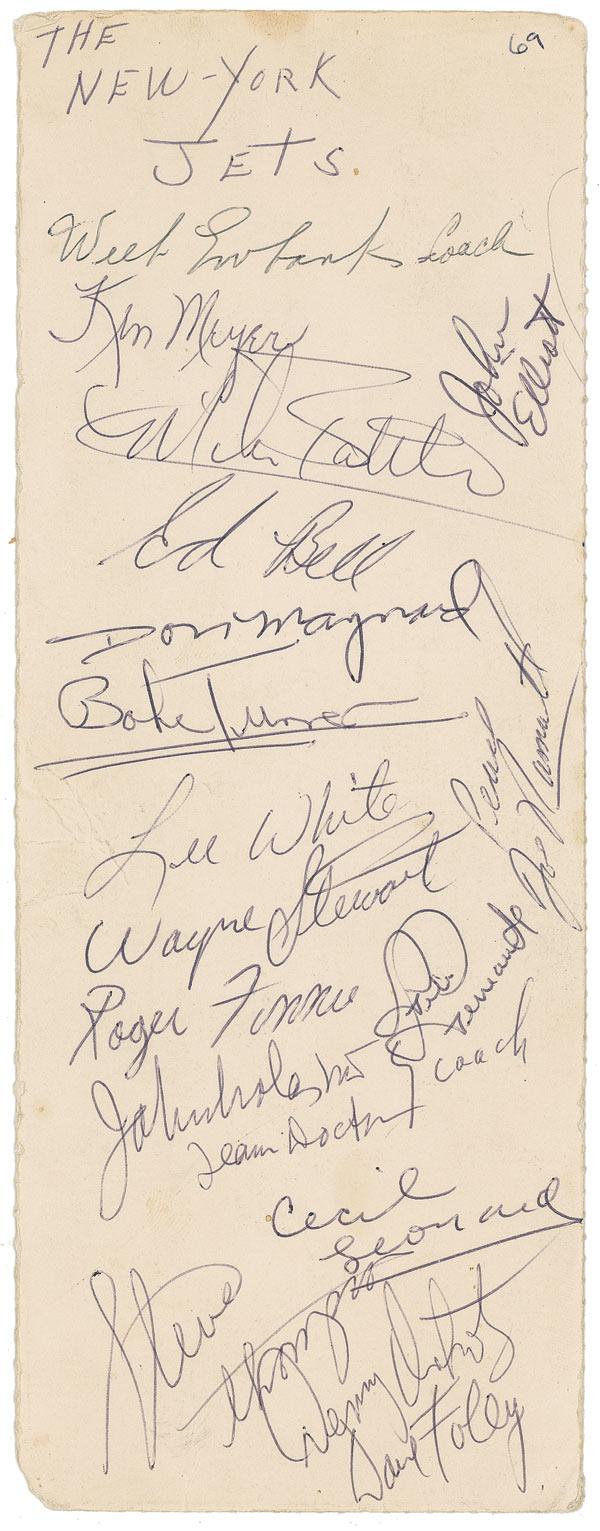 THE
69
NEW-YORK
JETS.
Weeb Ewbank Coach
Ken Meyer
John
Elliott
Ed Bell
Don Maynard
Bake Turner
Peace
Joe Namath
Lee White
Wayne Stewart
Roger Finnie
John
Team Doctor
Coach
Cecil
Leonard
Steve
Thompson
Dave Foley